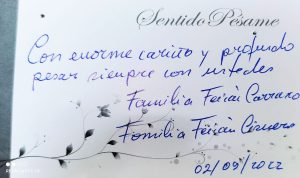 Sentido Pésame
Con enorme cariño y profundo
pesar siempre con ustedes
Familia Feicán
Familia Feicán
02/09/2022